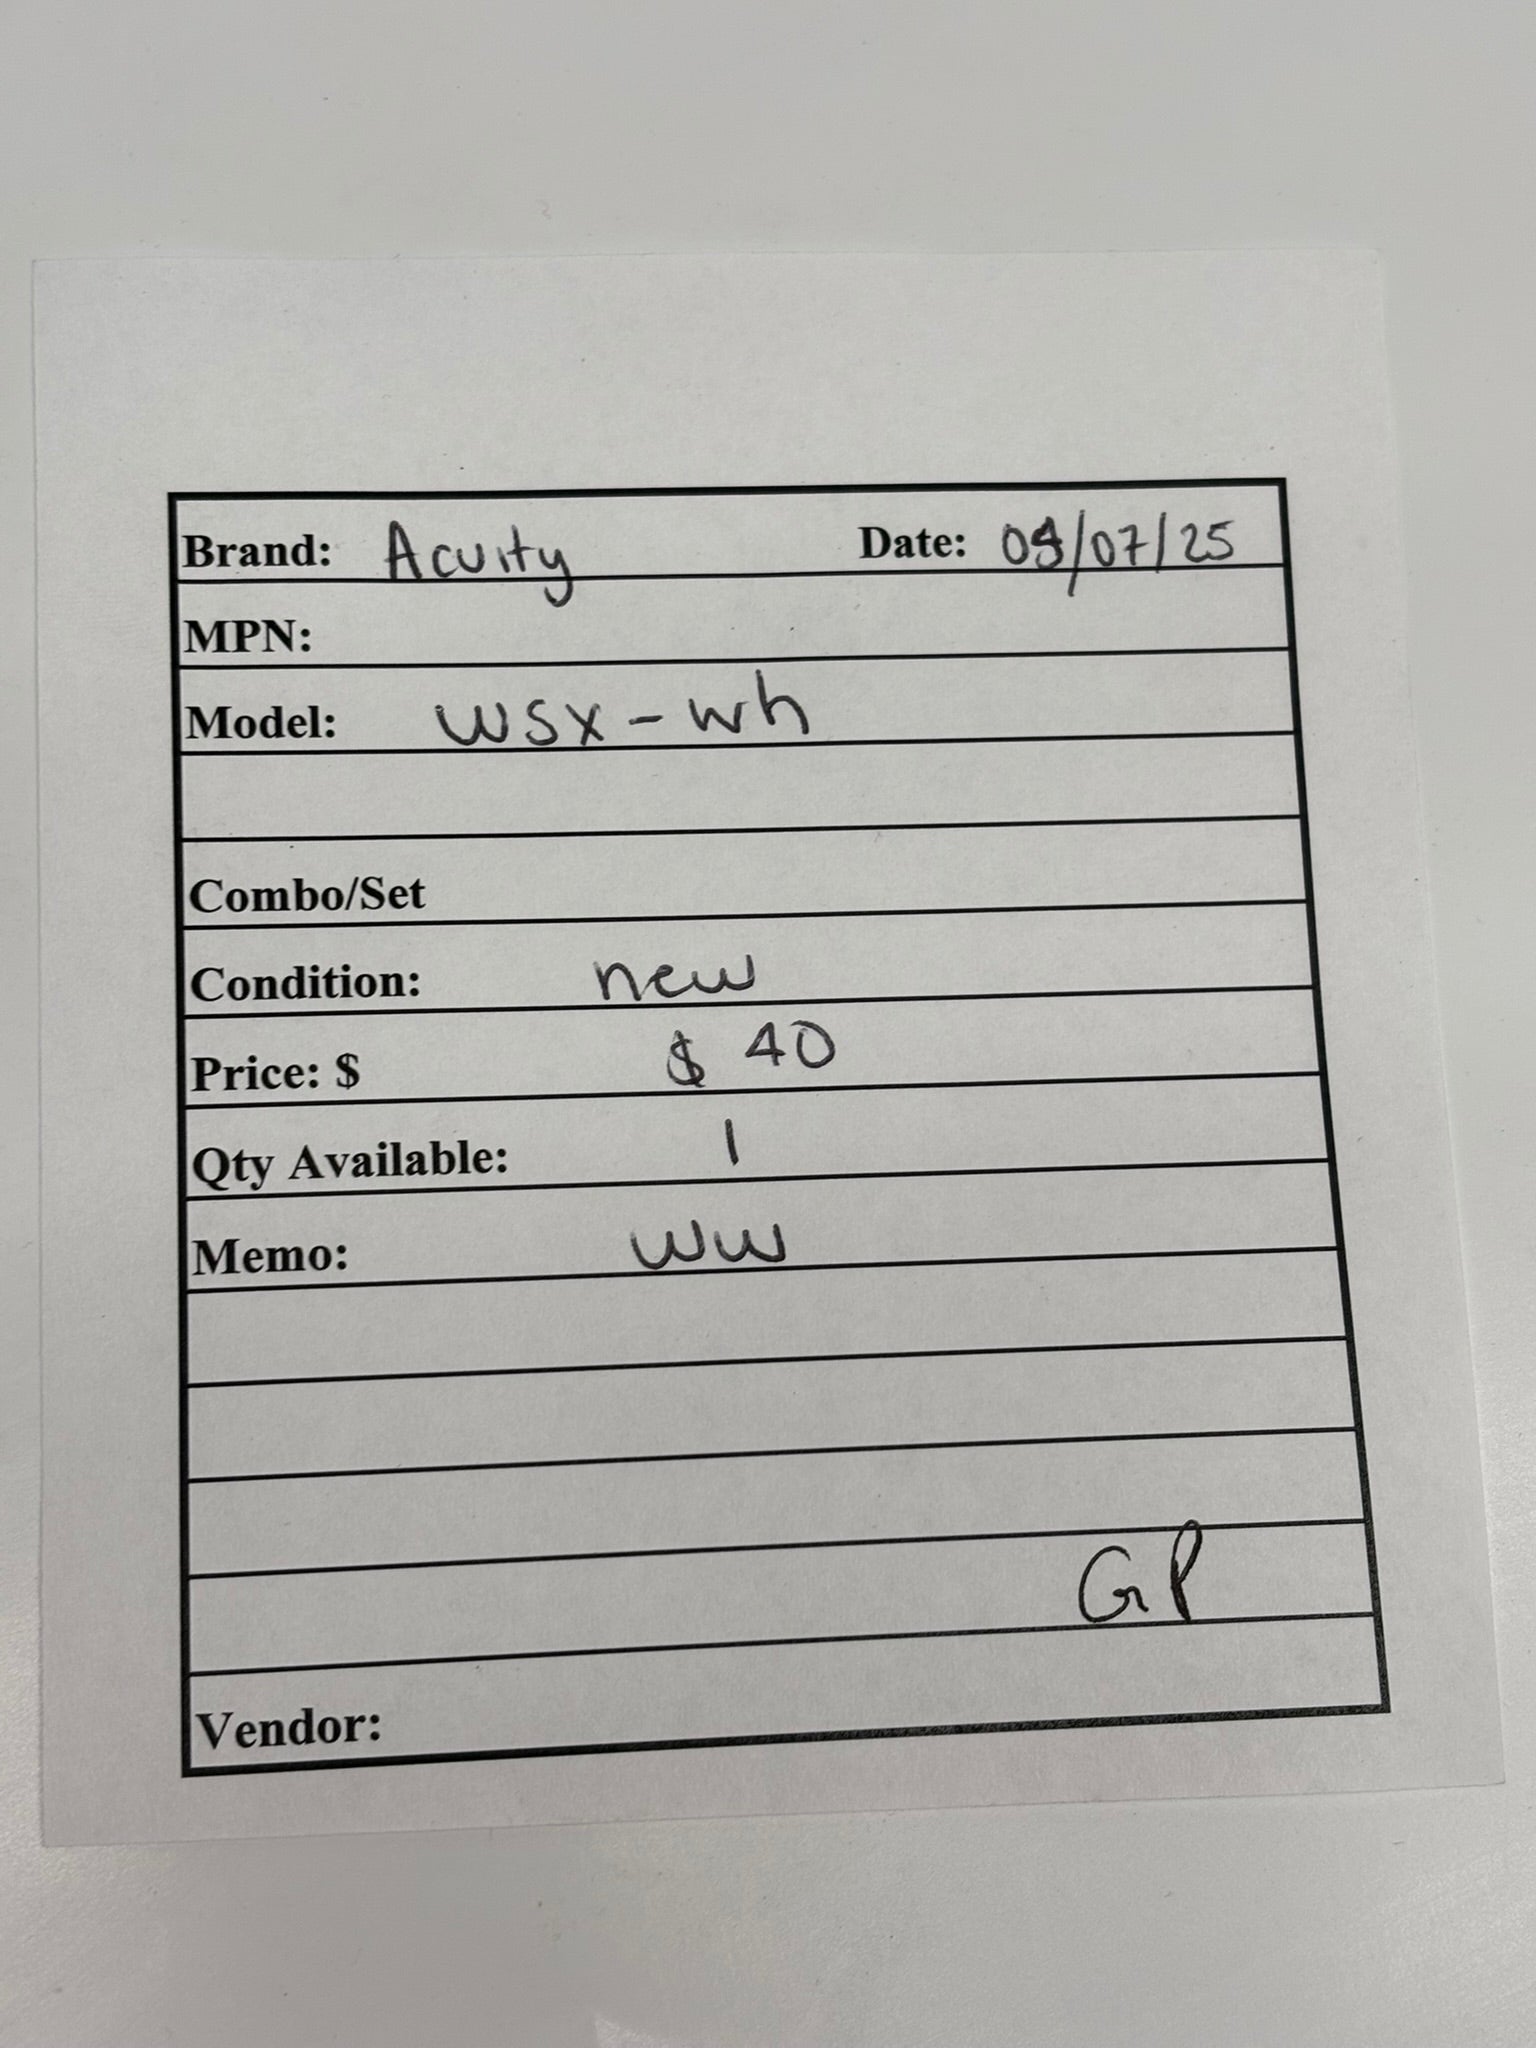 Brand: Acuity Date: 09/07/25
MPN:
Model: WSX-wh
Combo/Set
Condition: new
Price: $ $ 40
Qty Available: 1
Memo: WW
GP
Vendor: